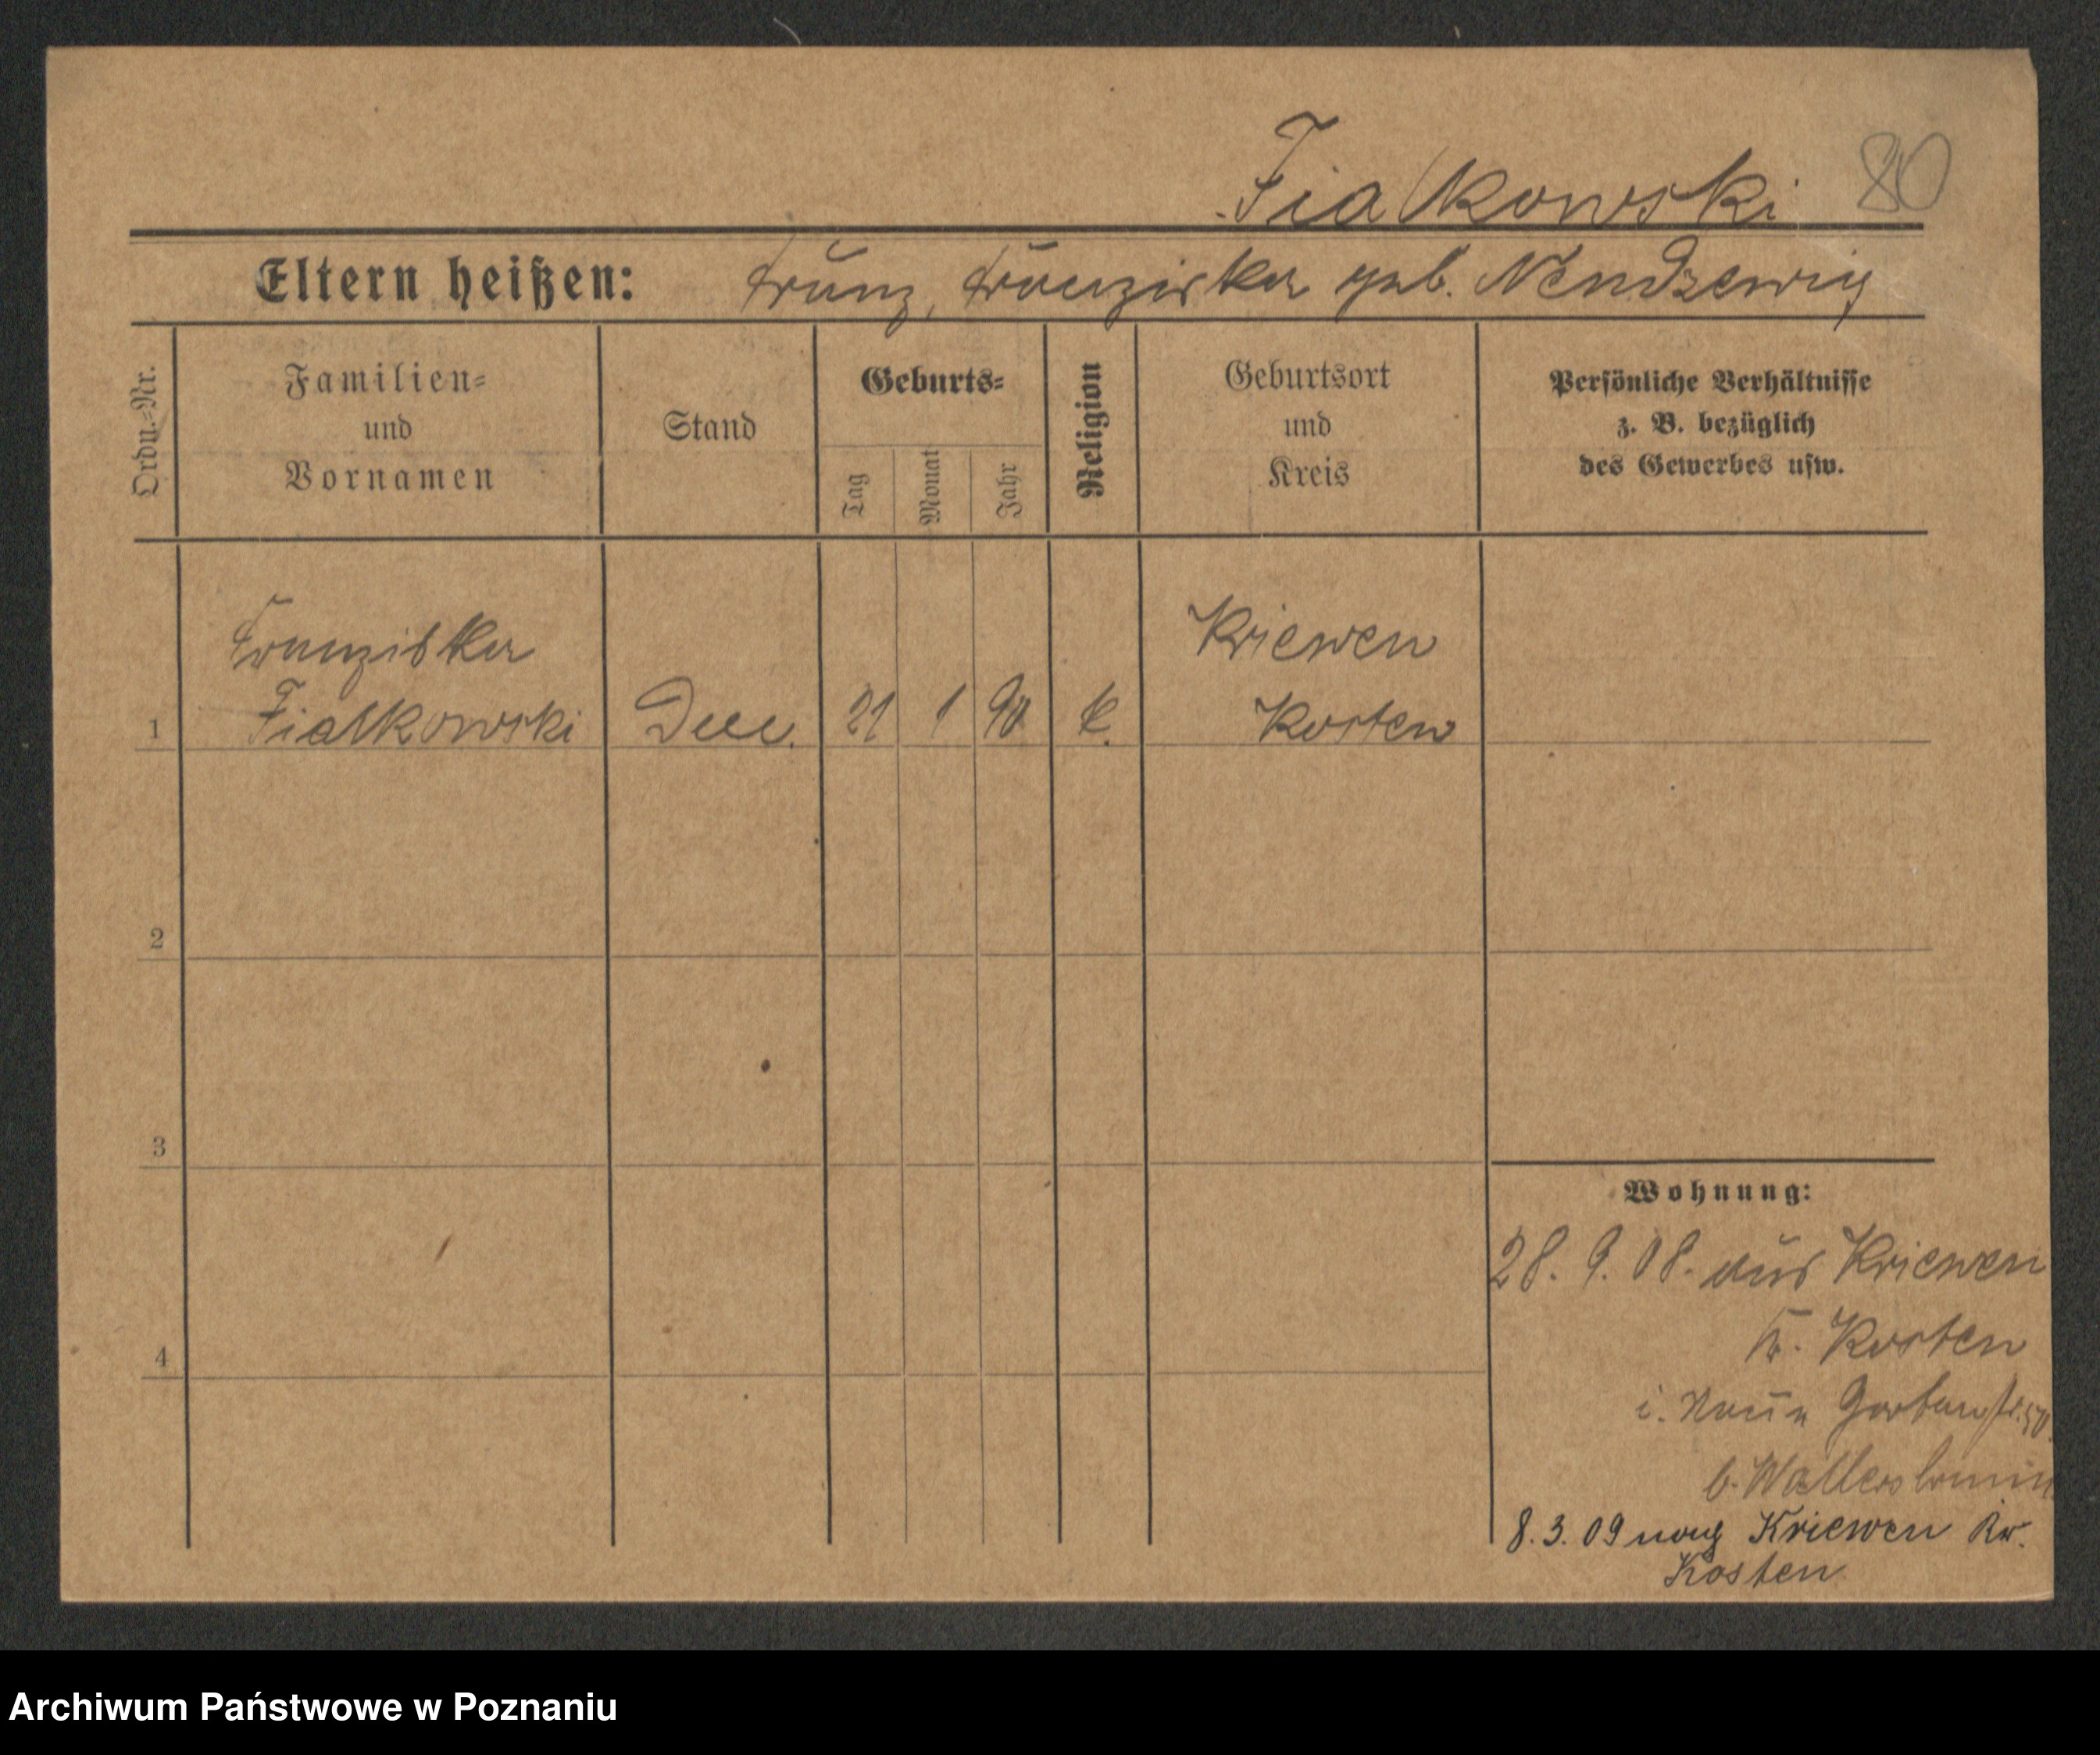 Fialkowski 80
Eltern heißen: Franz, Franziska geb. Nendzewig
Ordn.-Nr.
Familien-
und
Vornamen
Stand
Geburts-
Tag
Monat
Jahr
Religion
Geburtsort
und
Kreis
Persönliche Verhältnisse
z. B. bezüglich
des Gewerbes usw.
Franziska Kriewen
1 Fialkowski 21 1 90 k. Kosten
2
3
Wohnung:
28. 9. 08. aus Kriewen
4 Kr. Kosten
i. Neue Gartenstr.
b.
8. 3. 09 nach Kriewen Kr.
Kosten
Archiwum Państwowe w Poznaniu